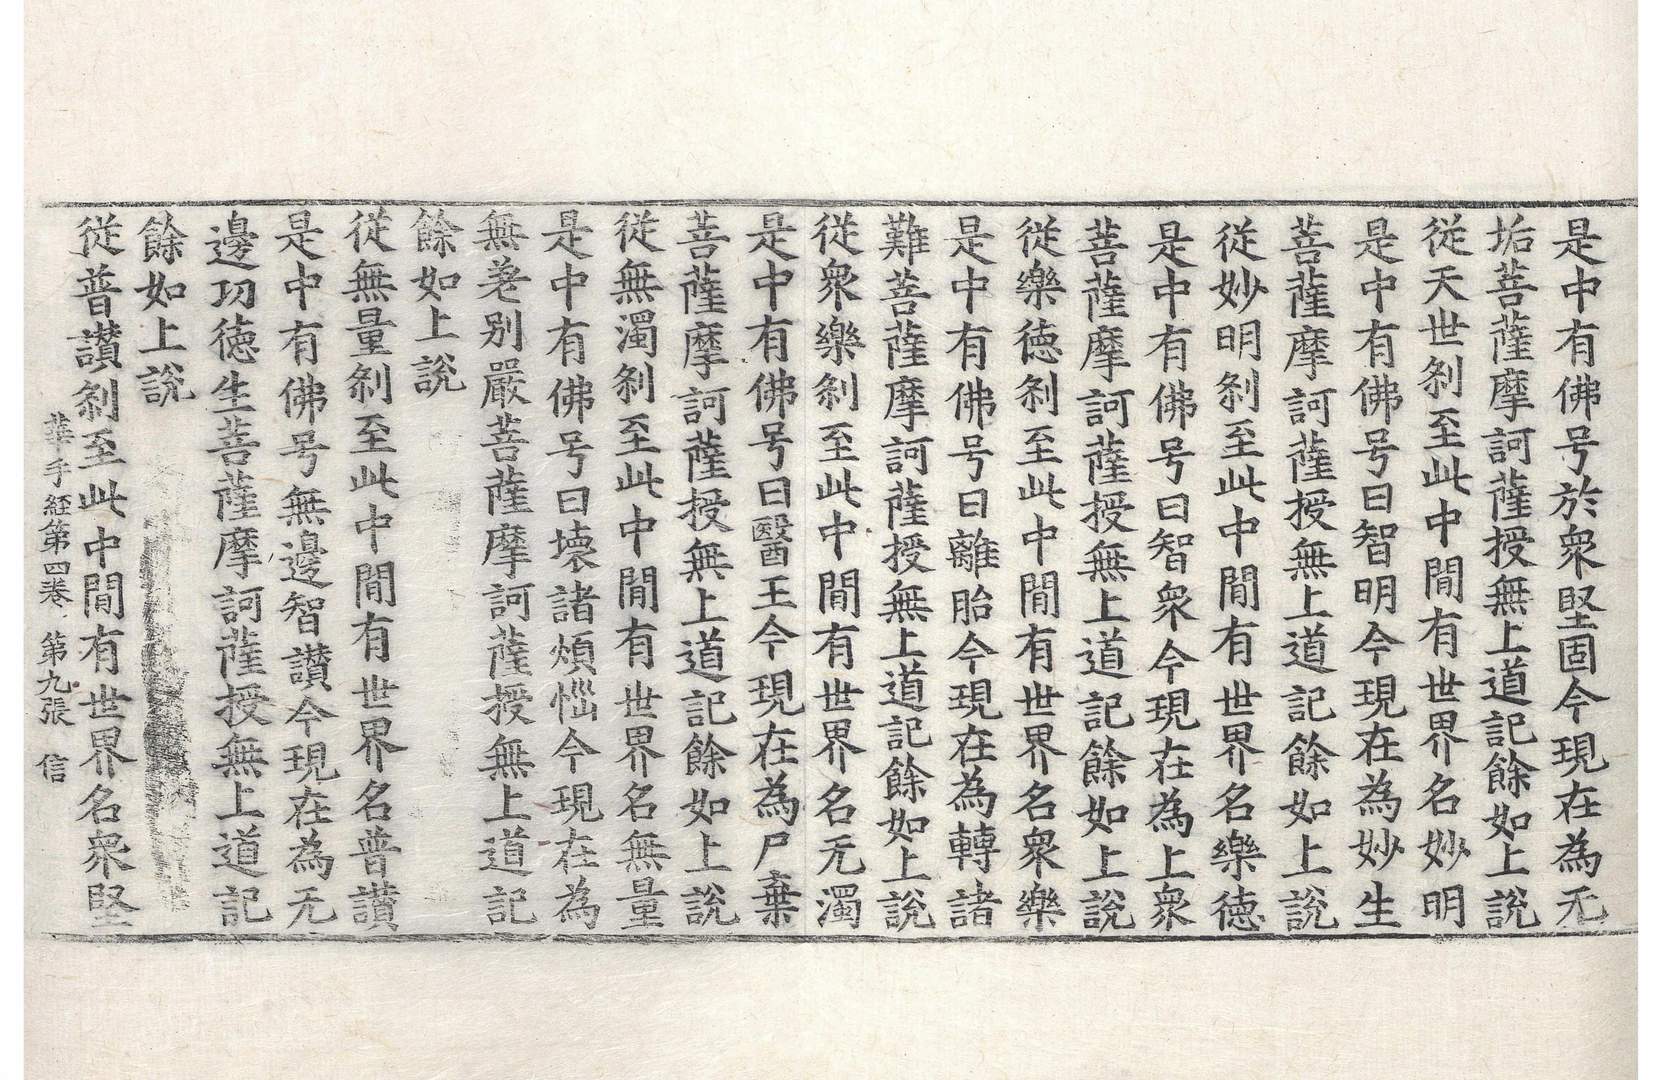 是中有佛号於衆堅固今現在為无
垢菩薩摩訶薩授無上道記餘如上說
從天世刹至此中間有世界名妙明
是中有佛号曰智明今現在為妙生
菩薩摩訶薩授無上道記餘如上說
從妙明刹至此中間有世界名樂德
是中有佛号曰智衆今現在為上衆
菩薩摩訶薩授無上道記餘如上說
從樂德刹至此中間有世界名衆樂
是中有佛号曰離胎今現在為轉諸
難菩薩摩訶薩授無上道記餘如上說
從衆樂刹至此中間有世界名无濁
是中有佛号曰醫王今現在為尸棄
菩薩摩訶薩授無上道記餘如上說
從無濁刹至此中間有世界名無量
是中有佛号曰壞諸煩惱今現在為
無差別嚴菩薩摩訶薩授無上道記
餘如上說
從無量刹至此中間有世界名普讃
是中有佛号無邊智讃今現在為无
邊功德生菩薩摩訶薩授無上道記
餘如上說
從普讃刹至此中間有世界名衆堅
華手経第四卷 第九張 信